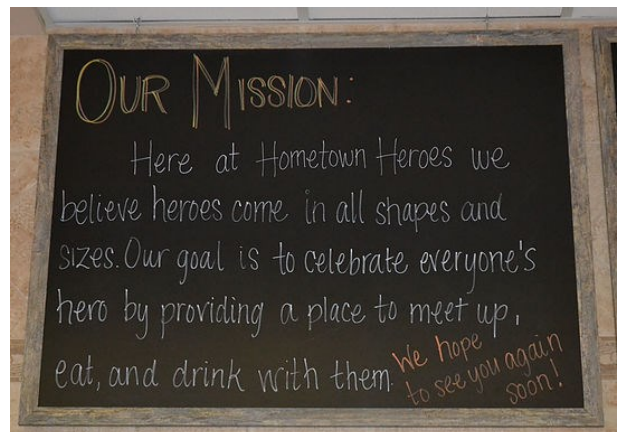 OUR MISSION:
Here at Hometown Heroes we
believe heroes come in all shapes and
sizes. Our goal is to celebrate everyone's
hero by providing a place to meet up,
eat, and drink with them.
We hope
to see you again
soon!